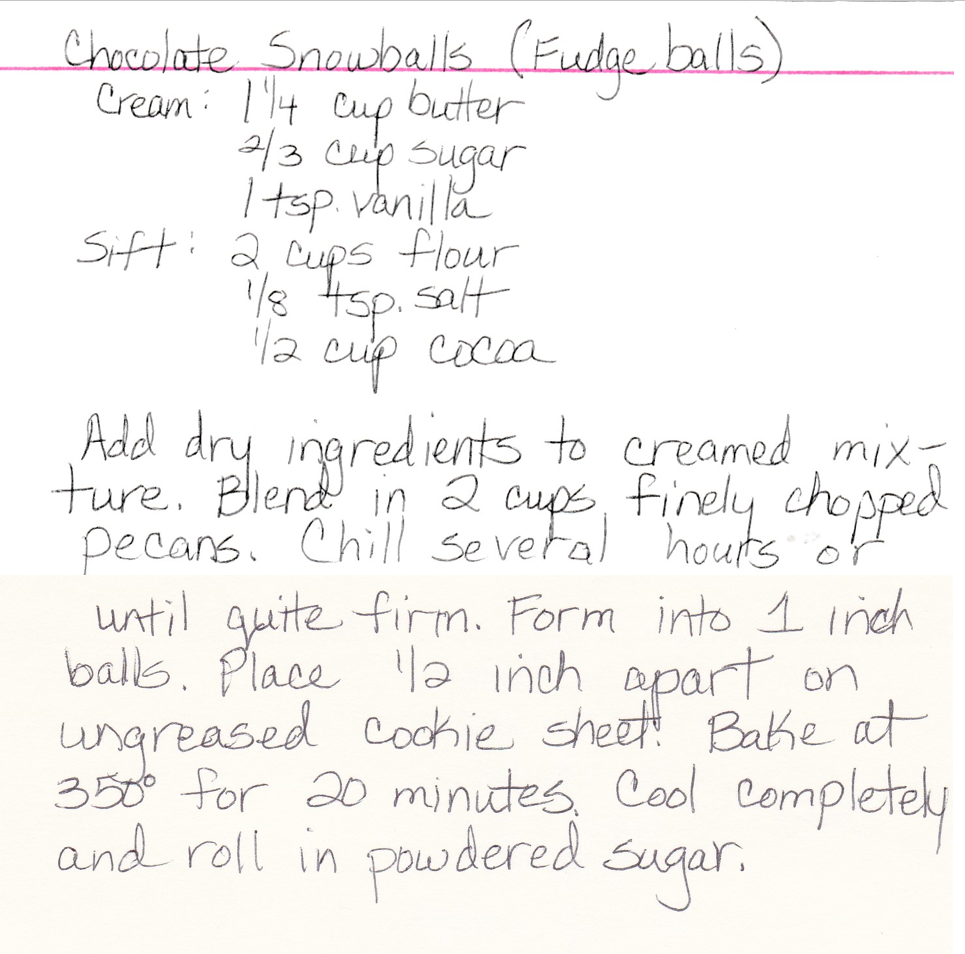 Chocolate Snowballs (Fudge balls)
Cream: 1 1/4 cup butter
2/3 cup sugar
1 tsp. vanilla
Sift: 2 cups flour
1/8 tsp. salt
1/2 cup cocoa
Add dry ingredients to creamed mix-
ture. Blend in 2 cups finely chopped
pecans. Chill several hours or
until quite firm. Form into 1 inch
balls. Place 1/2 inch apart on
ungreased cookie sheet. Bake at
350° for 20 minutes. Cool completely
and roll in powdered sugar.